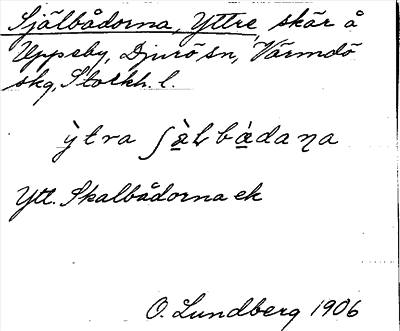 Själbådorna, Yttre, skär å
Uppeby, Djurö sn, Värmdö
skg, Stockh. l.
ỳtra ʃàɭbàdaɳa
Ytt. Skalbådorna ek
O. Lundberg 1906